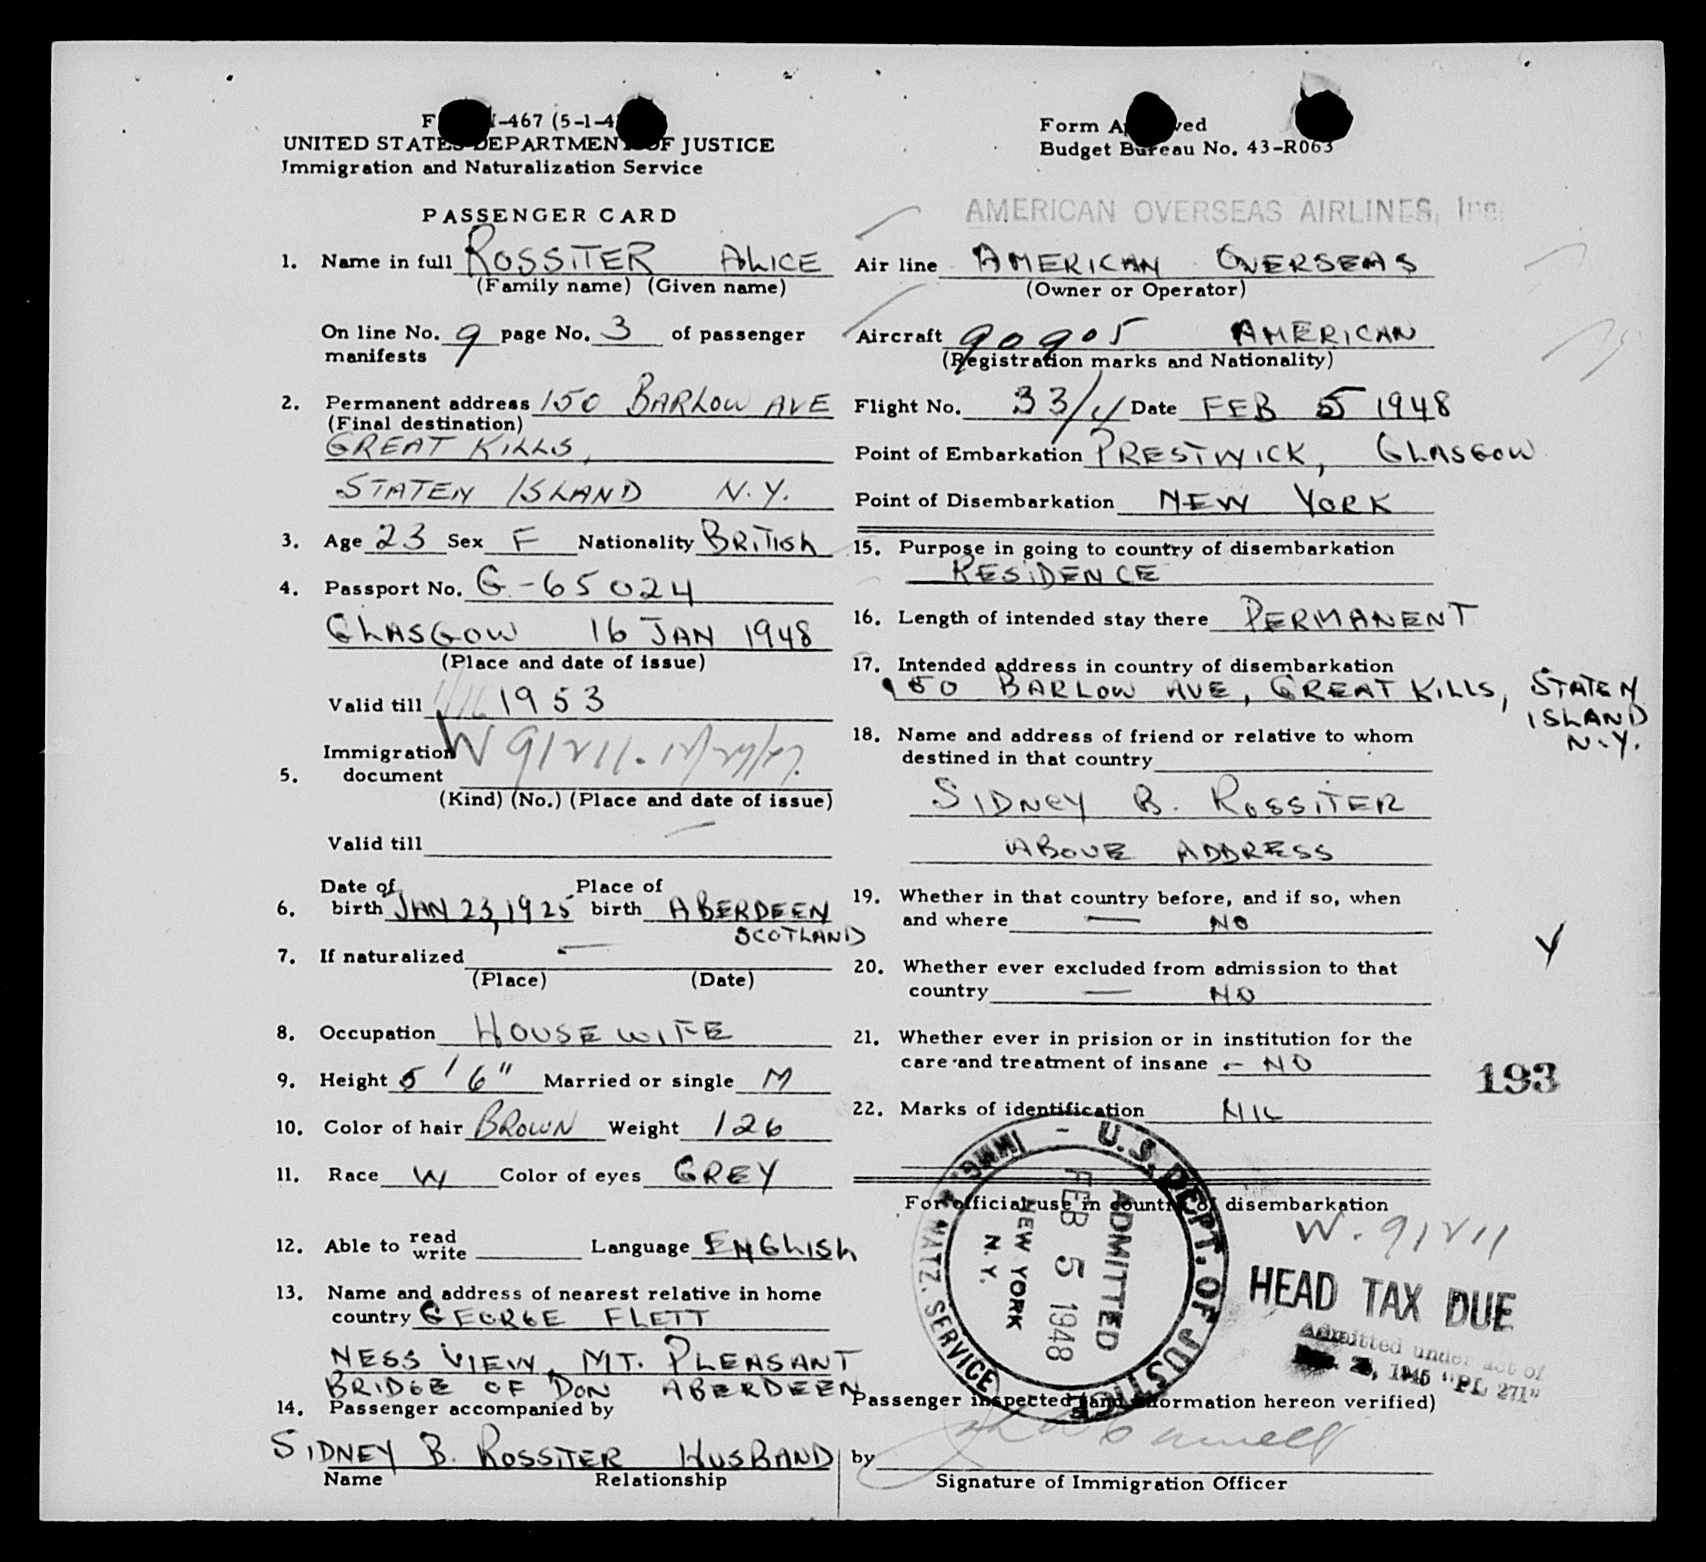 UNITED STATES DEPARTMENT OF JUSTICE
Immigration and Naturalization Service
PASSENGER CARD
1. Name in full ROSSITER ALICE
(Family name) (Given name)
On line No. 9 page No. 3 of passenger
manifests
2. Permanent address 150 BARLOW AVE
(Final destination)
GREAT KILLS,
STATEN ISLAND N.Y.
3. Age 23 Sex F Nationality BRITISH
4. Passport No. G-65024
GLASGOW 16 JAN 1948
(Place and date of issue)
Valid till 1953
Immigration
5. document W 91211.
(Kind) (No.) (Place and date of issue)
Valid till
Date of Place of
6. birth JAN 23, 1925 birth ABERDEEN
SCOTLAND
7. If naturalized —
(Place) (Date)
8. Occupation HOUSEWIFE
9. Height 5' 6" Married or single M
10. Color of hair BROWN Weight 126
11. Race W Color of eyes GREY
12. Able to read
write Language ENGLISH
13. Name and address of nearest relative in home
country GEORGE FLETT
NESS VIEW, MT. PLEASANT
BRIDGE OF DON ABERDEEN
14. Passenger accompanied by
SIDNEY B. ROSSITER HUSBAND
Name Relationship
Form Approved
Budget Bureau No. 43-R063
AMERICAN OVERSEAS AIRLINES, Inc.
Air line AMERICAN OVERSEAS
(Owner or Operator)
Aircraft 90905 AMERICAN
(Registration marks and Nationality)
Flight No. 33/4 Date FEB 5 1948
Point of Embarkation PRESTWICK, GLASGOW
Point of Disembarkation NEW YORK
15. Purpose in going to country of disembarkation
RESIDENCE
16. Length of intended stay there PERMANENT
17. Intended address in country of disembarkation
150 BARLOW AVE, GREAT KILLS, STATEN
ISLAND
N.Y.
18. Name and address of friend or relative to whom
destined in that country
SIDNEY B. ROSSITER
ABOVE ADDRESS
19. Whether in that country before, and if so, when
and where — NO
20. Whether ever excluded from admission to that
country — NO
21. Whether ever in prision or in institution for the
care and treatment of insane - NO
193
22. Marks of identification NIL
For official use in country of disembarkation
U.S. DEPT. OF JUSTICE
IMMIG. & NATZ. SERVICE
ADMITTED
FEB 5 1948
NEW YORK
N.Y.
W. 91211
HEAD TAX DUE
Admitted under act of
1945 "PL 271"
Passenger inspected (and information hereon verified)
by
Signature of Immigration Officer